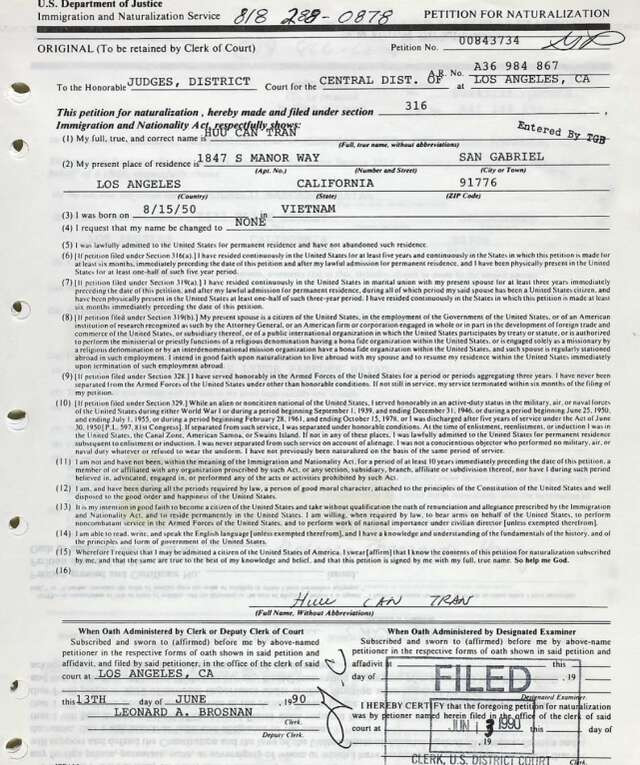 U.S. Department of Justice
Immigration and Naturalization Service 818 288-0878 PETITION FOR NATURALIZATION
ORIGINAL (To be retained by Clerk of Court) Petition No. 00843734
A.R. No. A36 984 867
To the Honorable JUDGES, DISTRICT Court for the CENTRAL DIST. OF at LOS ANGELES, CA
This petition for naturalization, hereby made and filed under section 316 ,
Immigration and Nationality Act, respectfully shows: Entered By TGB
(1) My full, true, and correct name is HUU CAN TRAN
(Full, true name, without abbreviations)
(2) My present place of residence is 1847 S MANOR WAY SAN GABRIEL
(Apt. No.) (Number and Street) (City or Town)
LOS ANGELES CALIFORNIA 91776
(Country) (State) (ZIP Code)
(3) I was born on 8/15/50 in VIETNAM
(4) I request that my name be changed to NONE
(5) I was lawfully admitted to the United States for permanent residence and have not abandoned such residence.
(6) [If petition filed under Section 316(a).] I have resided continuously in the United States for at least five years and continuously in the State in which this petition is made for
at least six months, immediately preceding the date of this petition and after my lawful admission for permanent residence, and I have been physically present in the United
States for at least one-half of such five year period.
(7) [If petition filed under Section 319(a).] I have resided continuously in the United States in marital union with my present spouse for at least three years immediately
preceding the date of this petition, and after my lawful admission for permanent residence, during all of which period my said spouse has been a United States citizen, and
have been physically present in the United States at least one-half of such three-year period. I have resided continuously in the State in which this petition is made at least
six months immediately preceding the date of this petition.
(8) [If petition filed under Section 319(b).] My present spouse is a citizen of the United States, in the employment of the Government of the United States, or of an American
institution of research recognized as such by the Attorney General, or an American firm or corporation engaged in whole or in part in the development of foreign trade and
commerce of the United States, or subsidiary thereof, or of a public international organization in which the United States participates by treaty or statute, or is authorized
to perform the ministerial or priestly functions of a religious denomination having a bona fide organization within the United States, or is engaged solely as a missionary by
a religious denomination or by an interdenominational mission organization having a bona fide organization within the United States, and such spouse is regularly stationed
abroad in such employment. I intend in good faith upon naturalization to live abroad with my spouse and to resume my residence within the United States immediately
upon termination of such employment abroad.
(9) [If petition filed under Section 328.] I have served honorably in the Armed Forces of the United States for a period or periods aggregating three years. I have never been
separated from the Armed Forces of the United States under other than honorable conditions. If not still in service, my service terminated within six months of the filing of
my petition.
(10) [If petition filed under Section 329.] While an alien or noncitizen national of the United States, I served honorably in an active-duty status in the military, air, or naval forces
of the United States during either World War I or during a period beginning September 1, 1939, and ending December 31, 1946, or during a period beginning June 25, 1950,
and ending July 1, 1955, or during a period beginning February 28, 1961, and ending October 15, 1978, or I was discharged after five years of service under the Act of June
30, 1950 [P.L. 597, 81st Congress]. If separated from such service, I was separated under honorable conditions. At the time of enlistment, reenlistment, or induction I was in
the United States, the Canal Zone, American Samoa, or Swains Island. If not in any of these places, I was lawfully admitted to the United States for permanent residence
subsequent to enlistment or induction. I was never separated from such service on account of alienage. I was not a conscientious objector who performed no military, air, or
naval duty whatever or refused to wear the uniform. I have not previously been naturalized on the basis of the same period of service.
(11) I am not and have not been, within the meaning of the Immigration and Nationality Act, for a period of at least 10 years immediately preceding the date of this petition, a
member of or affiliated with any organization proscribed by such Act, or any section, subsidiary, branch, affiliate or subdivision thereof, nor have I during such period
believed in, advocated, engaged in, or performed any of the acts or activities prohibited by such Act.
(12) I am, and have been during all the periods required by law, a person of good moral character, attached to the principles of the Constitution of the United States and well
disposed to the good order and happiness of the United States.
(13) It is my intention in good faith to become a citizen of the United States and take without qualification the oath of renunciation and allegiance prescribed by the Immigration
and Nationality Act, and to reside permanently in the United States. I am willing, when required by law, to bear arms on behalf of the United States, to perform
noncombatant service in the Armed Forces of the United States, and to perform work of national importance under civilian director [unless exempted therefrom].
(14) I am able to read, write, and speak the English language [unless exempted therefrom], and I have a knowledge and understanding of the fundamentals of the history, and of
the principles and form of government of the United States.
(15) Wherefore I request that I may be admitted a citizen of the United States of America. I swear [affirm] that I know the contents of this petition for naturalization subscribed
by me, and that the same are true to the best of my knowledge and belief, and that this petition is signed by me with my full, true name. So help me God.
(16)
Huu CAN TRAN
(Full Name, Without Abbreviations)
When Oath Administered by Clerk or Deputy Clerk of Court
Subscribed and sworn to (affirmed) before me by above-named
petitioner in the respective forms of oath shown in said petition and
affidavit, and filed by said petitioner, in the office of the clerk of said
court at LOS ANGELES, CA
this 13TH day of JUNE , 19 90
LEONARD A. BROSNAN
Clerk.
Deputy Clerk.
When Oath Administered by Designated Examiner
Subscribed and sworn to (affirmed) before me by above-named
petitioner in the respective forms of oath shown in said petition and
affidavit at this
day of , 19
FILED
Designated Examiner.
I HEREBY CERTIFY that the foregoing petition for naturalization
was by petitioner named herein filed in the office of the clerk of said
court at this day of
JUN 13 1990
, 19
CLERK, U.S. DISTRICT COURT
Clerk.